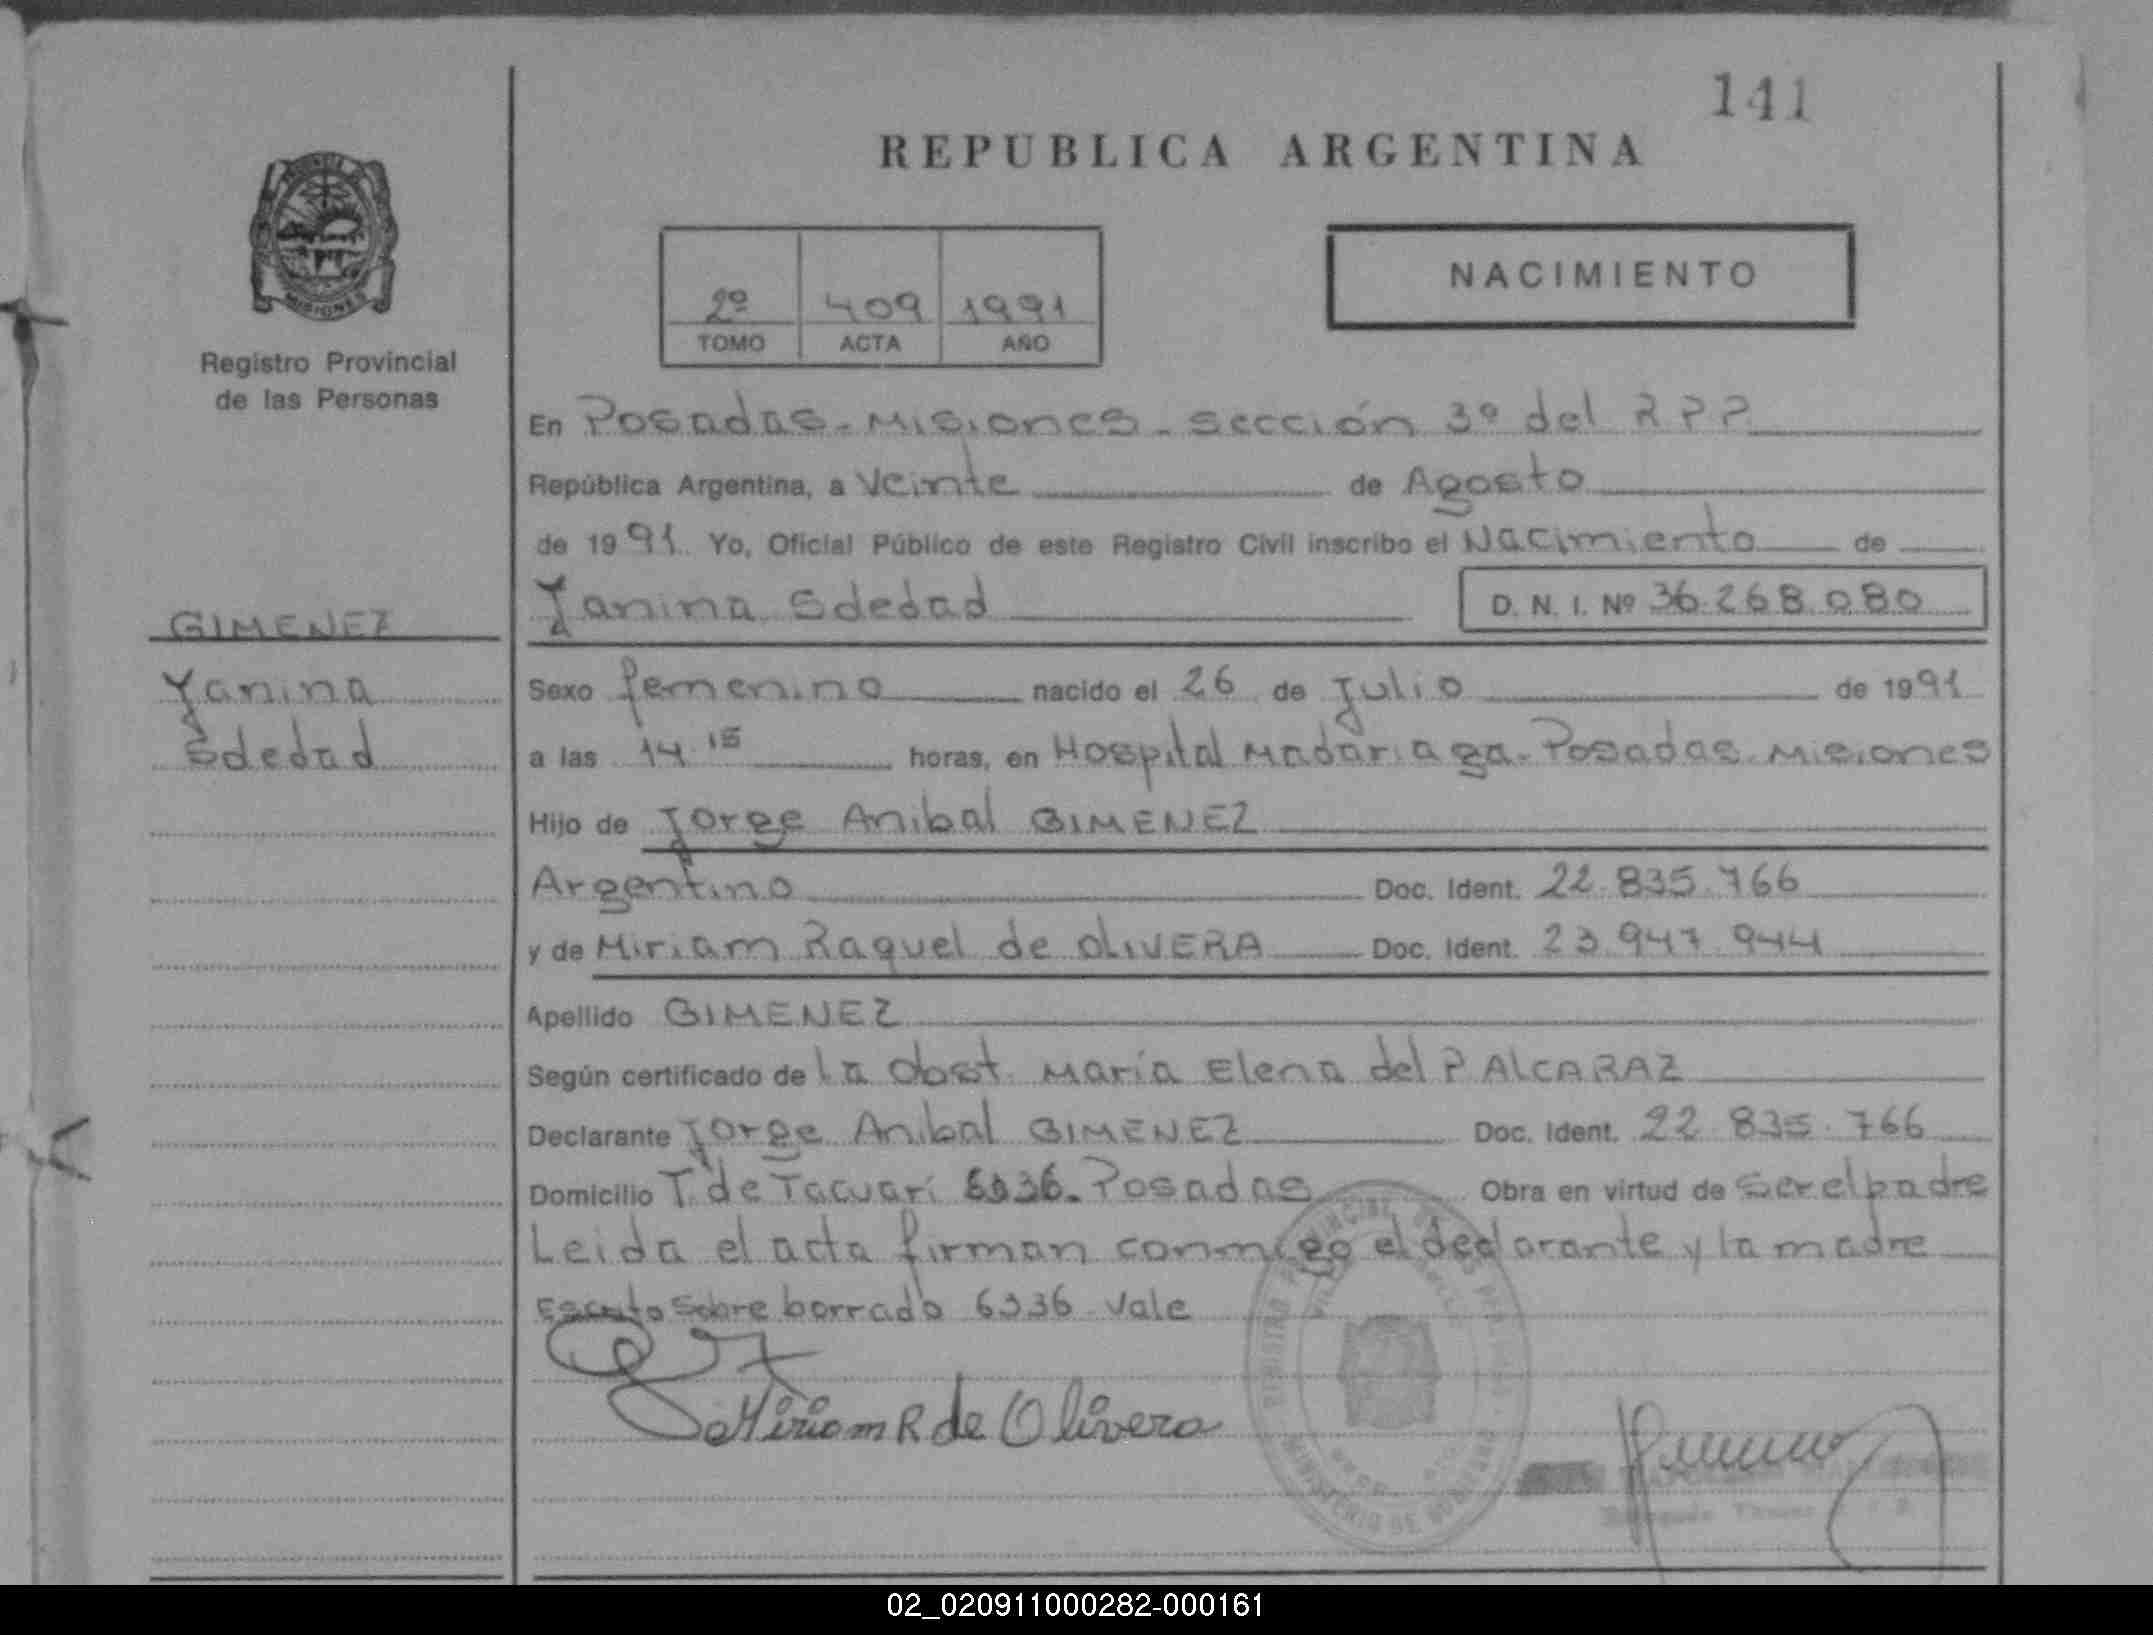 141
REPUBLICA ARGENTINA
PROVINCIA DE
MISIONES
Registro Provincial
de las Personas
2º 409 1991
TOMO ACTA AÑO
NACIMIENTO
En Posadas - Misiones - sección 3º del R P P
República Argentina, a Veinte de Agosto
de 1991. Yo, Oficial Público de este Registro Civil inscribo el Nacimiento de
Yanina Soledad D. N. I. Nº 36.268.080
GIMENEZ
Yanina
Soledad
Sexo femenino nacido el 26 de Julio de 1991
a las 14.15 horas, en Hospital Madariaga - Posadas - Misiones
Hijo de Jorge Anibal GIMENEZ
Argentino Doc. Ident. 22.835.766
y de Miriam Raquel de OLIVERA Doc. Ident. 23.947.944
Apellido GIMENEZ
Según certificado de la Obst. María Elena del P ALCARAZ
Declarante Jorge Anibal GIMENEZ Doc. Ident. 22.835.766
Domicilio T. de Tacuarí 6336. Posadas Obra en virtud de ser el padre
Leida el acta firman conmigo el declarante y la madre
Escrito sobre borrado 6336 Vale
Miriam R de Olivera
REGISTRO PROVINCIAL DE LAS PERSONAS
MINISTERIO DE GOBIERNO
02_020911000282-000161